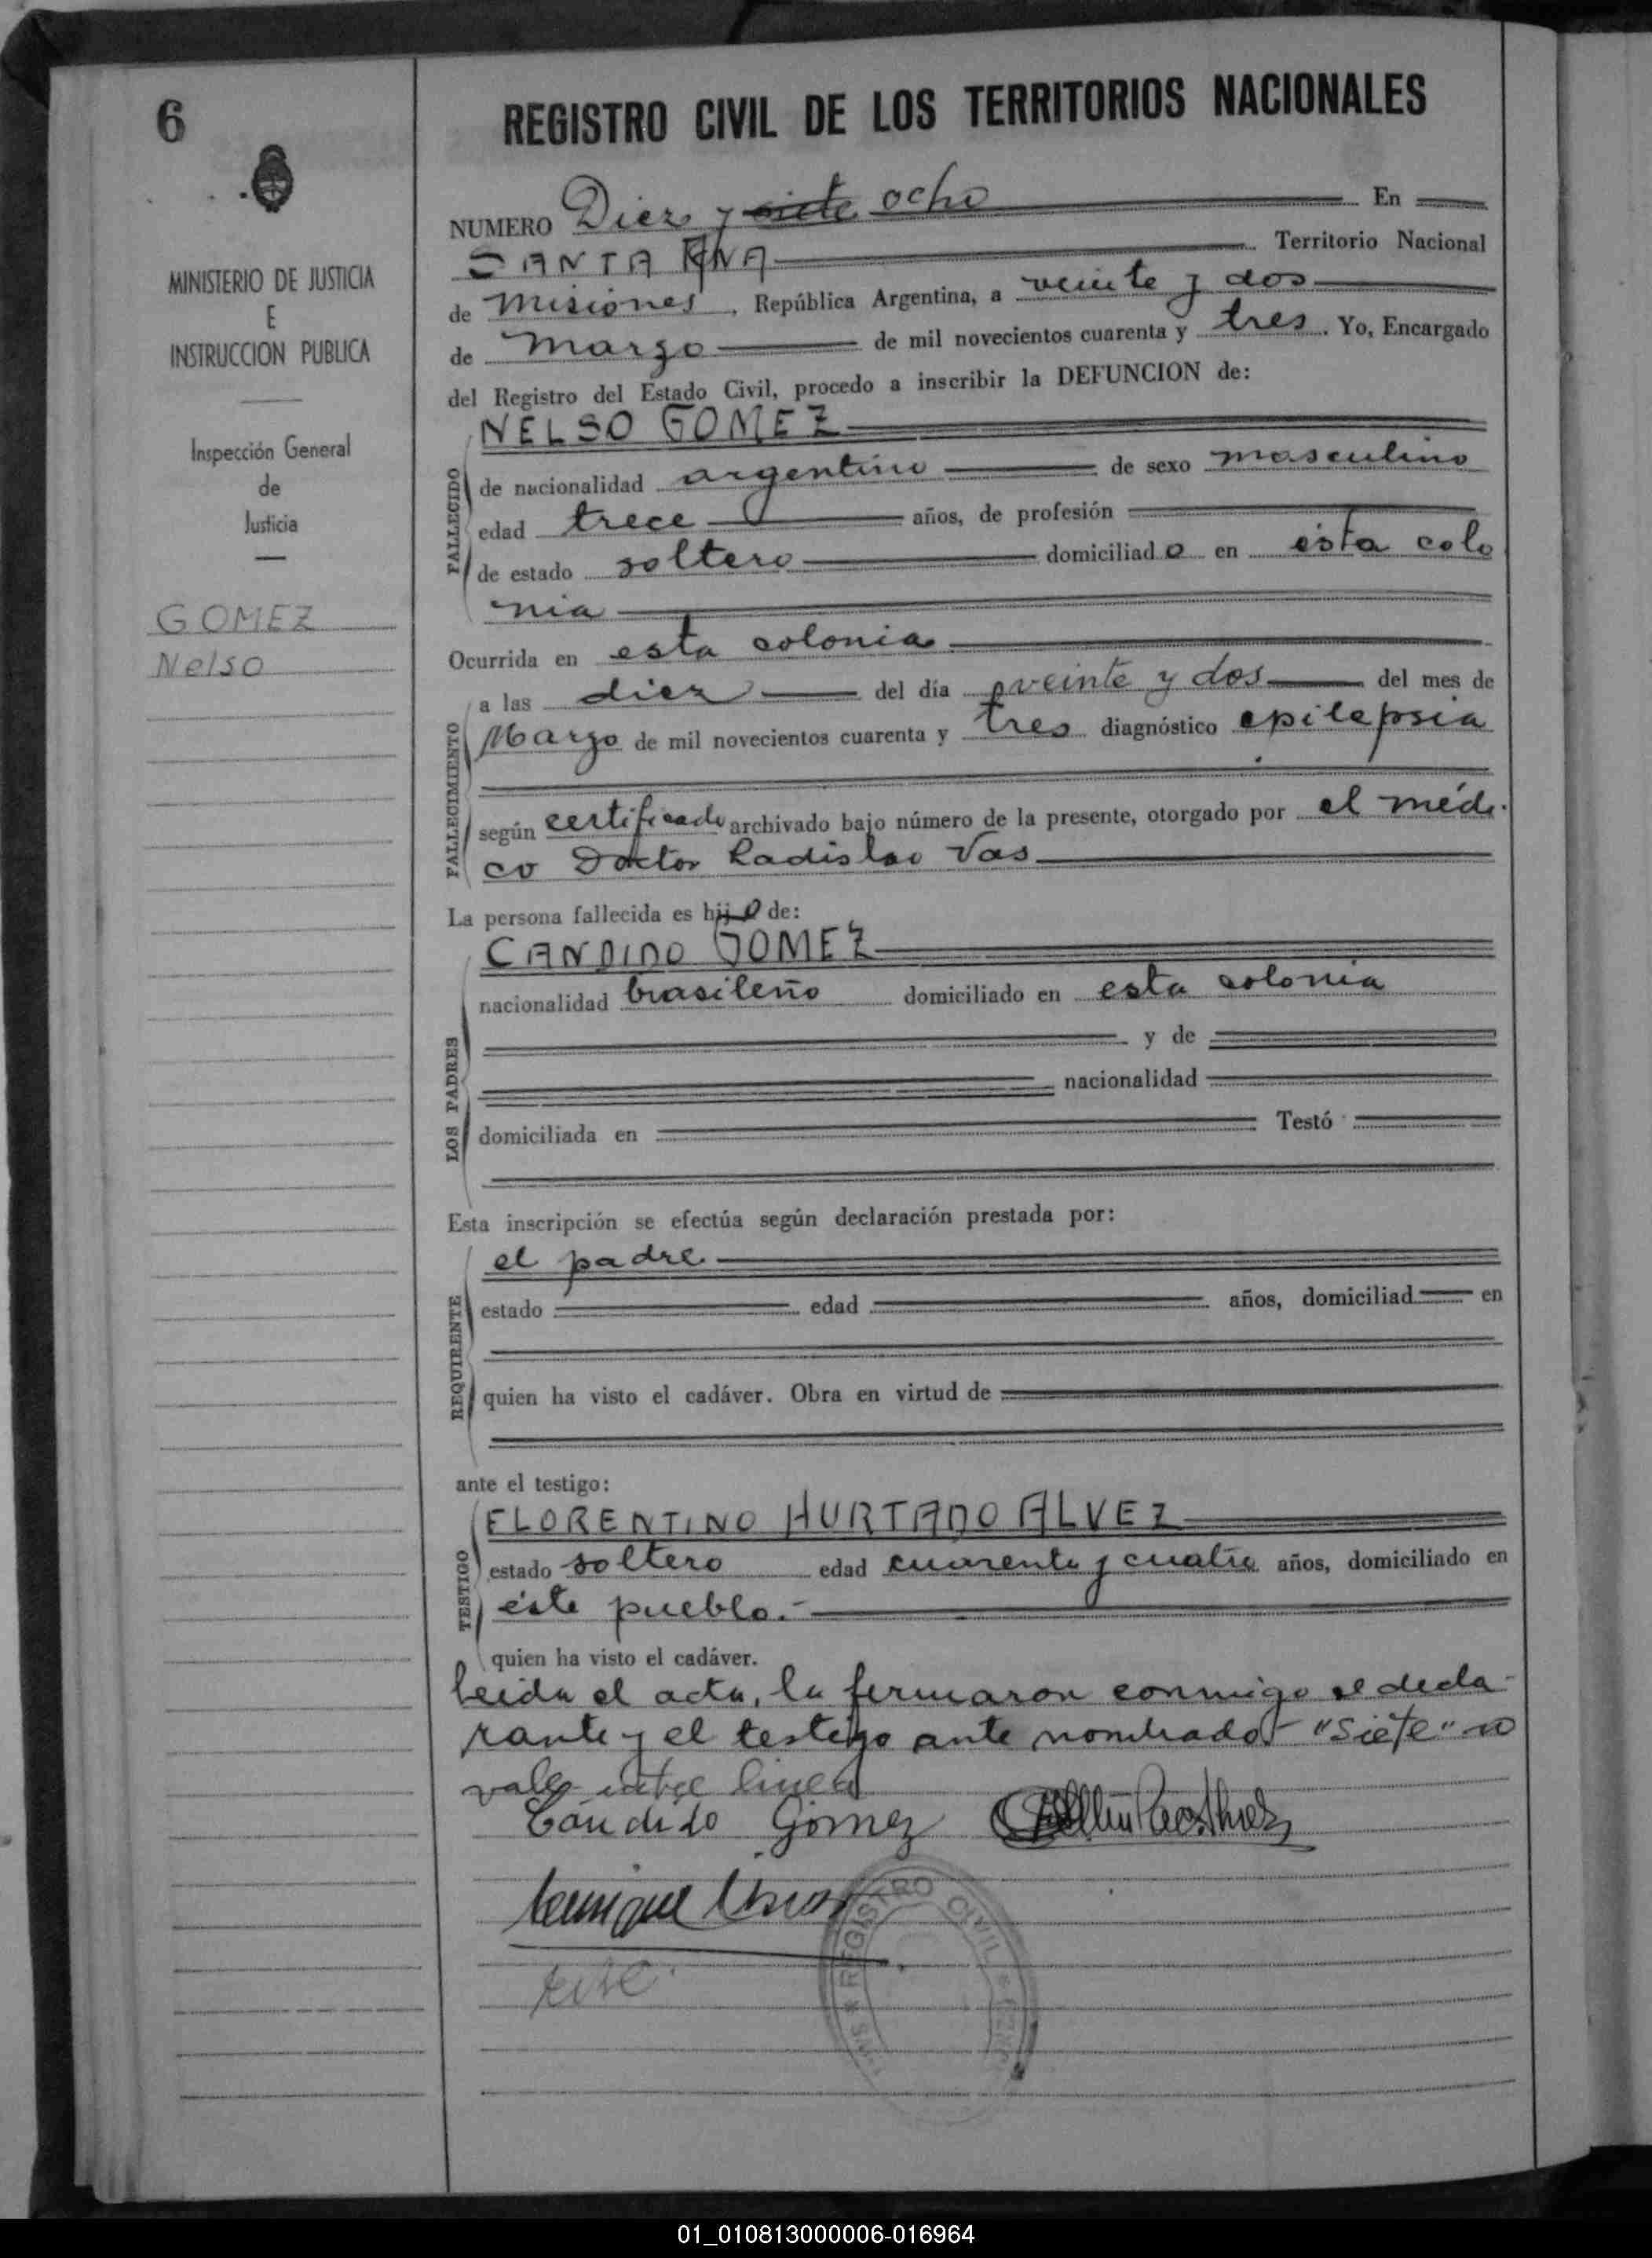 6
MINISTERIO DE JUSTICIA
E
INSTRUCCION PUBLICA
Inspección General
de
Justicia
GOMEZ
Nelso
REGISTRO CIVIL DE LOS TERRITORIOS NACIONALES
NUMERO Diez y siete ocho En
SANTA ANA Territorio Nacional
de Misiones, República Argentina, a veinte y dos
de Marzo de mil novecientos cuarenta y tres. Yo, Encargado
del Registro del Estado Civil, procedo a inscribir la DEFUNCION de:
NELSO GOMEZ
FALLECIDO
de nacionalidad argentino de sexo masculino
edad trece años, de profesión
de estado soltero domiciliado en ésta colo
nia
Ocurrida en esta colonia
FALLECIMIENTO
a las diez del día veinte y dos del mes de
Marzo de mil novecientos cuarenta y tres diagnóstico epilepsia
según certificado archivado bajo número de la presente, otorgado por el médi-
co Doktor Ladislao Vas
La persona fallecida es hijo de:
CANDIDO GOMEZ
LOS PADRES
nacionalidad brasileño domiciliado en esta colonia
y de
nacionalidad
domiciliada en Testó
Esta inscripción se efectúa según declaración prestada por:
el padre
REQUIRENTE
estado edad años, domiciliad en
quien ha visto el cadáver. Obra en virtud de
ante el testigo:
FLORENTINO HURTADO ALVEZ
TESTIGO
estado soltero edad cuarenta y cuatro años, domiciliado en
éste pueblo.-
quien ha visto el cadáver.
Leida el acta, la firmaron conmigo el decla-
rante y el testigo ante nombrado - "siete" no
vale entre linea
Cándido Gómez
REGISTRO CIVIL
01_010813000006-016964